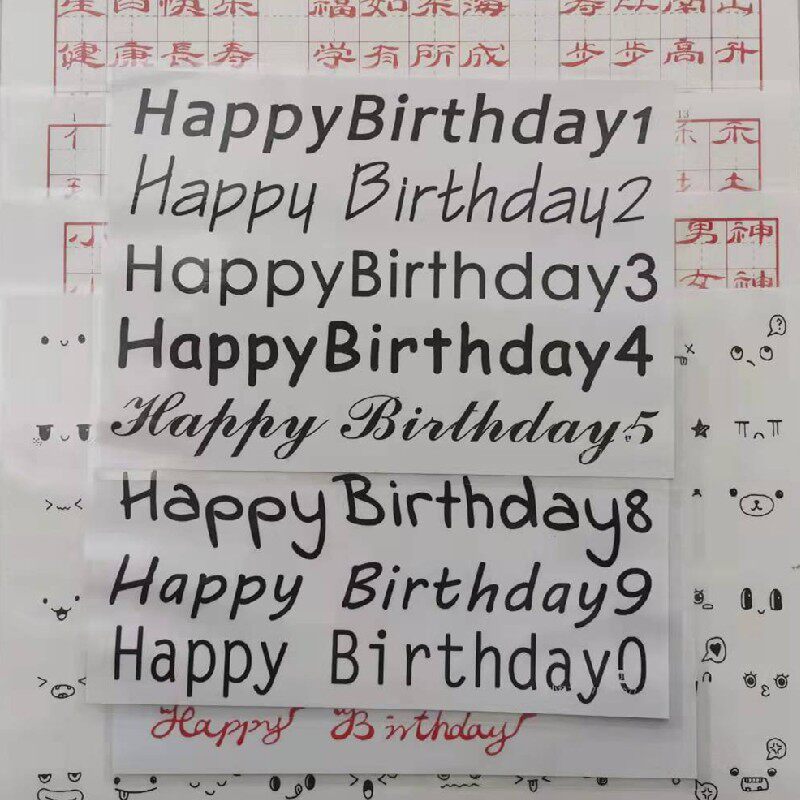 生日快乐 福如东海 寿比南山
健康長寿 学有所成 步步高升
HappyBirthday1
13
Happy Birthday2
小 男神
HappyBirthday3
女神
HappyBirthday4
Happy Birthday5
Happy Birthday8
Happy Birthday9
Happy Birthday0
Happy Birthday